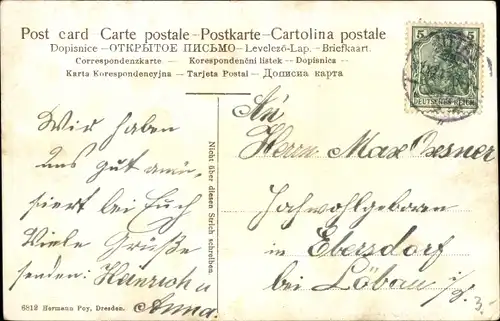 Post card Carte postale – Postkarte – Cartolina postale
Dopisnice – ОТКРЫТОЕ ПИСЬМО – Levelező-Lap. – Briefkaart.
Correspondenzkarte – Korespondenční listek – Dopisnica –
Karta Korespondencyjna – Tarjeta Postal – Дописна карта
5 5
DEUTSCHES REICH
Wir haben
uns gut amü-
siert bei Euch
Viele Grüße
senden: Heinrich u
Anna.
Nicht über diesen Strich schreiben.
An
Herrn Max Oesner
Hochwohlgeboren
in Ebersdorf
bei Löbau i/S.
3.
6812 Hermann Poy, Dresden.